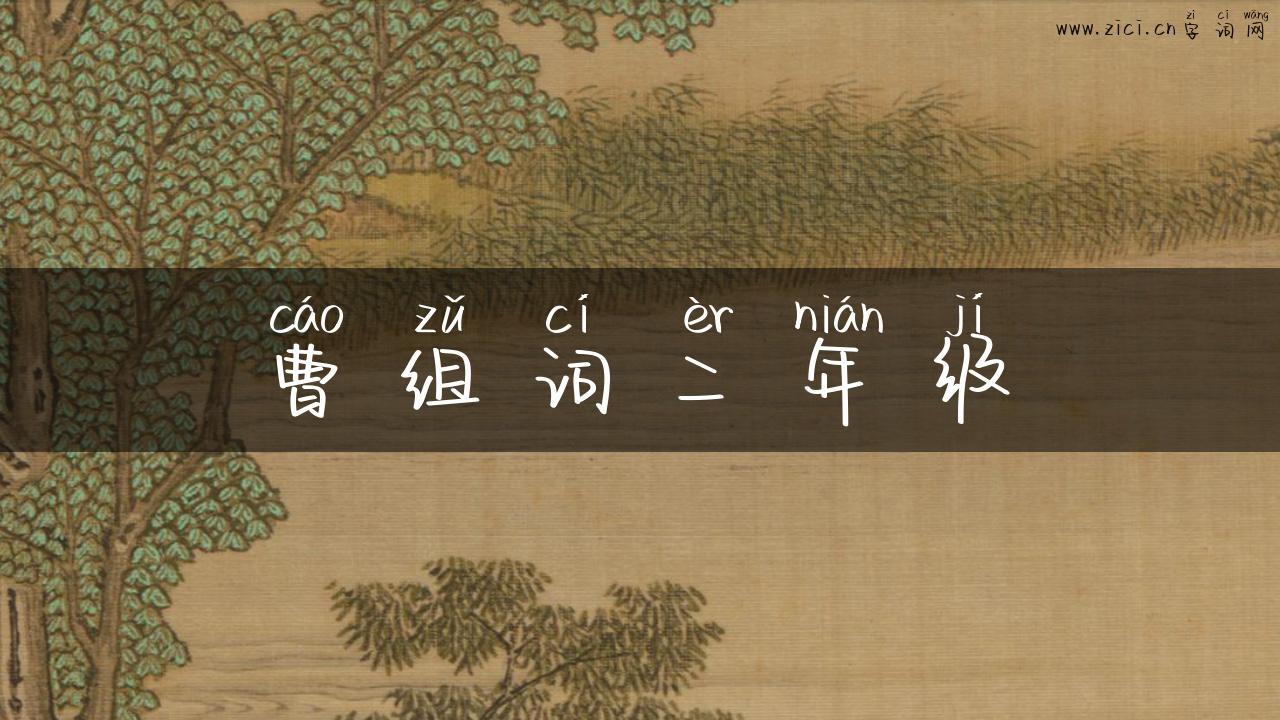 zì cí wǎng
www.zici.cn 字词网
cáo zǔ cí èr nián jí
曹组词二年级